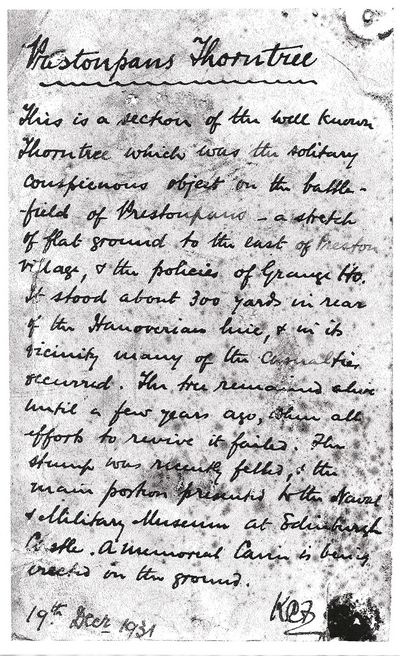 Prestonpans Thorntree
This is a section of the well known
Thorntree which was the solitary
conspicuous object on the battle-
field of Prestonpans - a stretch
of flat ground to the east of Preston
village, & the policies of Grange Ho.
It stood about 300 yards in rear
of the Hanoverian line, & in its
vicinity many of the casualties
occurred. The tree remained alive
until a few years ago, when all
efforts to revive it failed. The
stump was recently felled, & the
main portion presented to the Naval
& Military Museum at Edinburgh
Castle. A memorial Cairn is being
erected on the ground.
19th Decr 1931